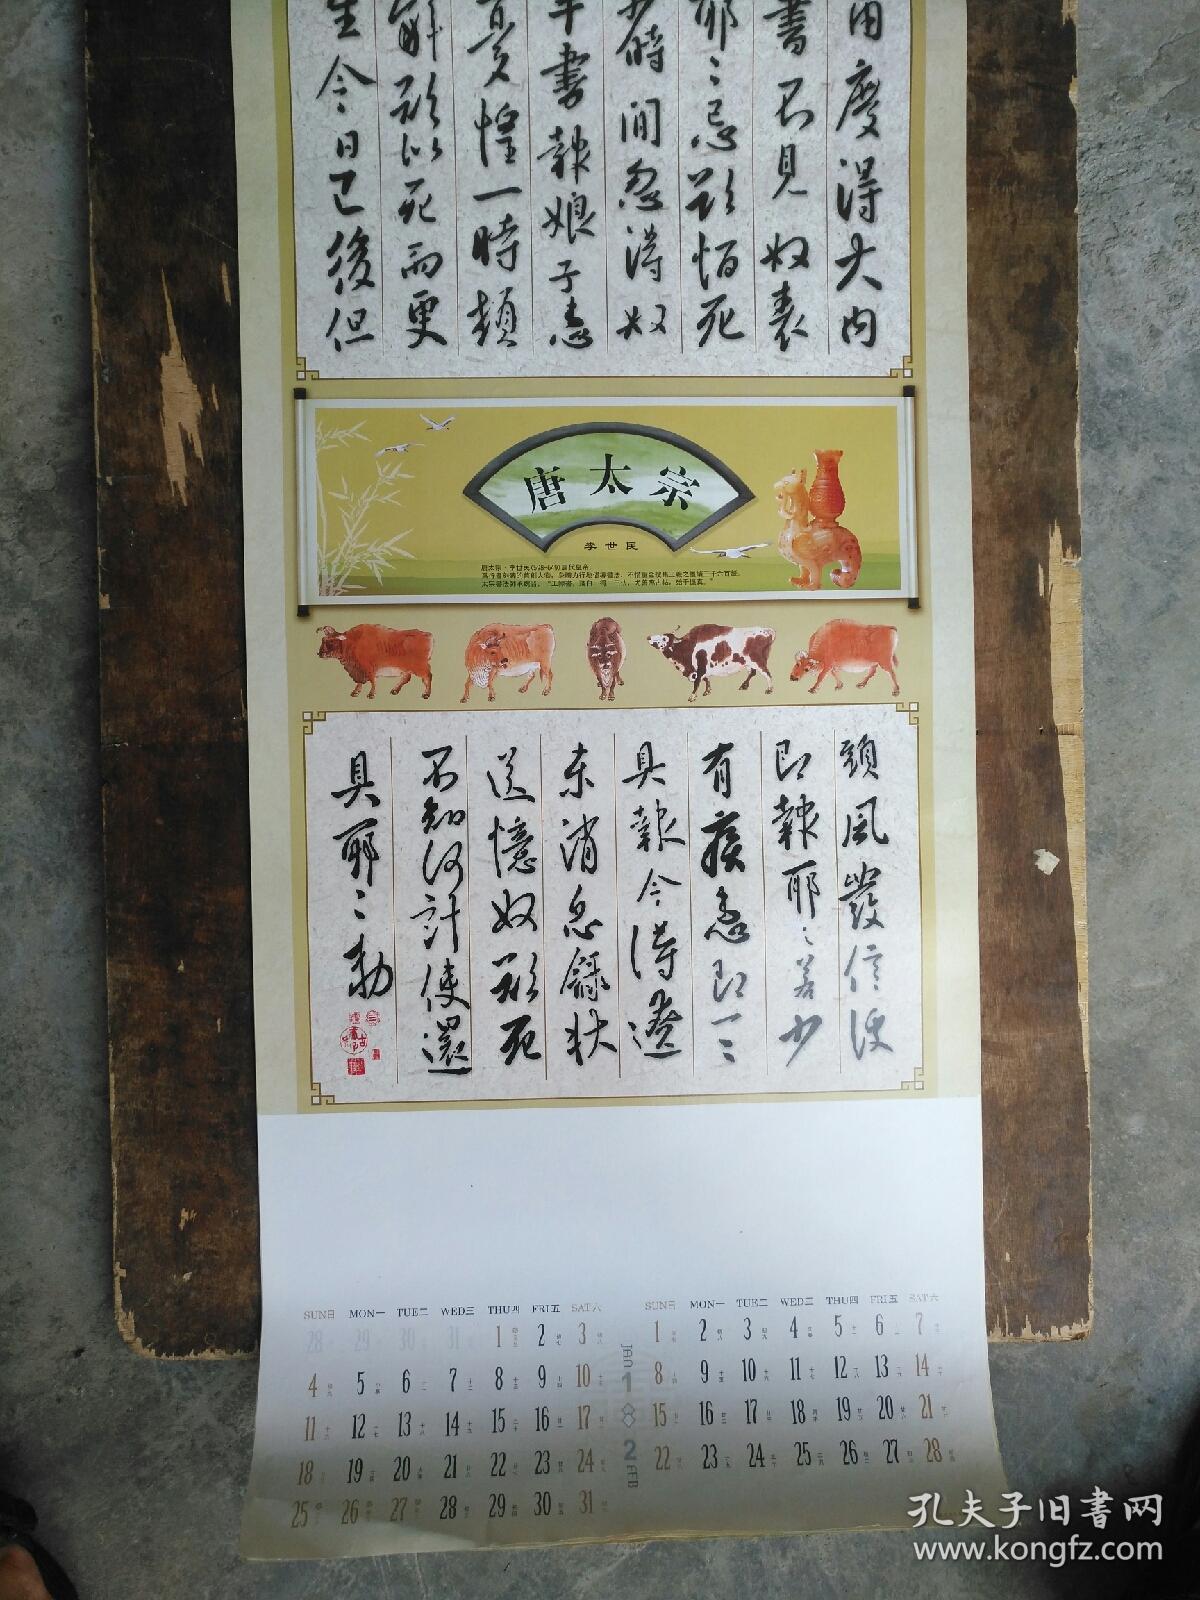 用度得大内
書不見奴表
耶耶忌欲恆死
少時間忽得奴
手書報娘子患
憂惶一時頓
解欲似死而更
生今日已後但
唐太宗
李世民
頭風發信便
即報耶耶若少
有疾患即一一
具報今得遼
東消息錄狀
送憶奴欲死
不知何計使還
具耶耶勅
SUN日 MON一 TUE二 WED三 THU四 FRI五 SAT六
28 29 30 31 1 2 3
4 5 6 7 8 9 10
11 12 13 14 15 16 17
18 19 20 21 22 23 24
25 26 27 28 29 30 31
JAN 1
2 FEB
SUN日 MON一 TUE二 WED三 THU四 FRI五 SAT六
1 2 3 4 5 6 7
8 9 10 11 12 13 14
15 16 17 18 19 20 21
22 23 24 25 26 27 28
孔夫子旧书网
www.kongfz.com